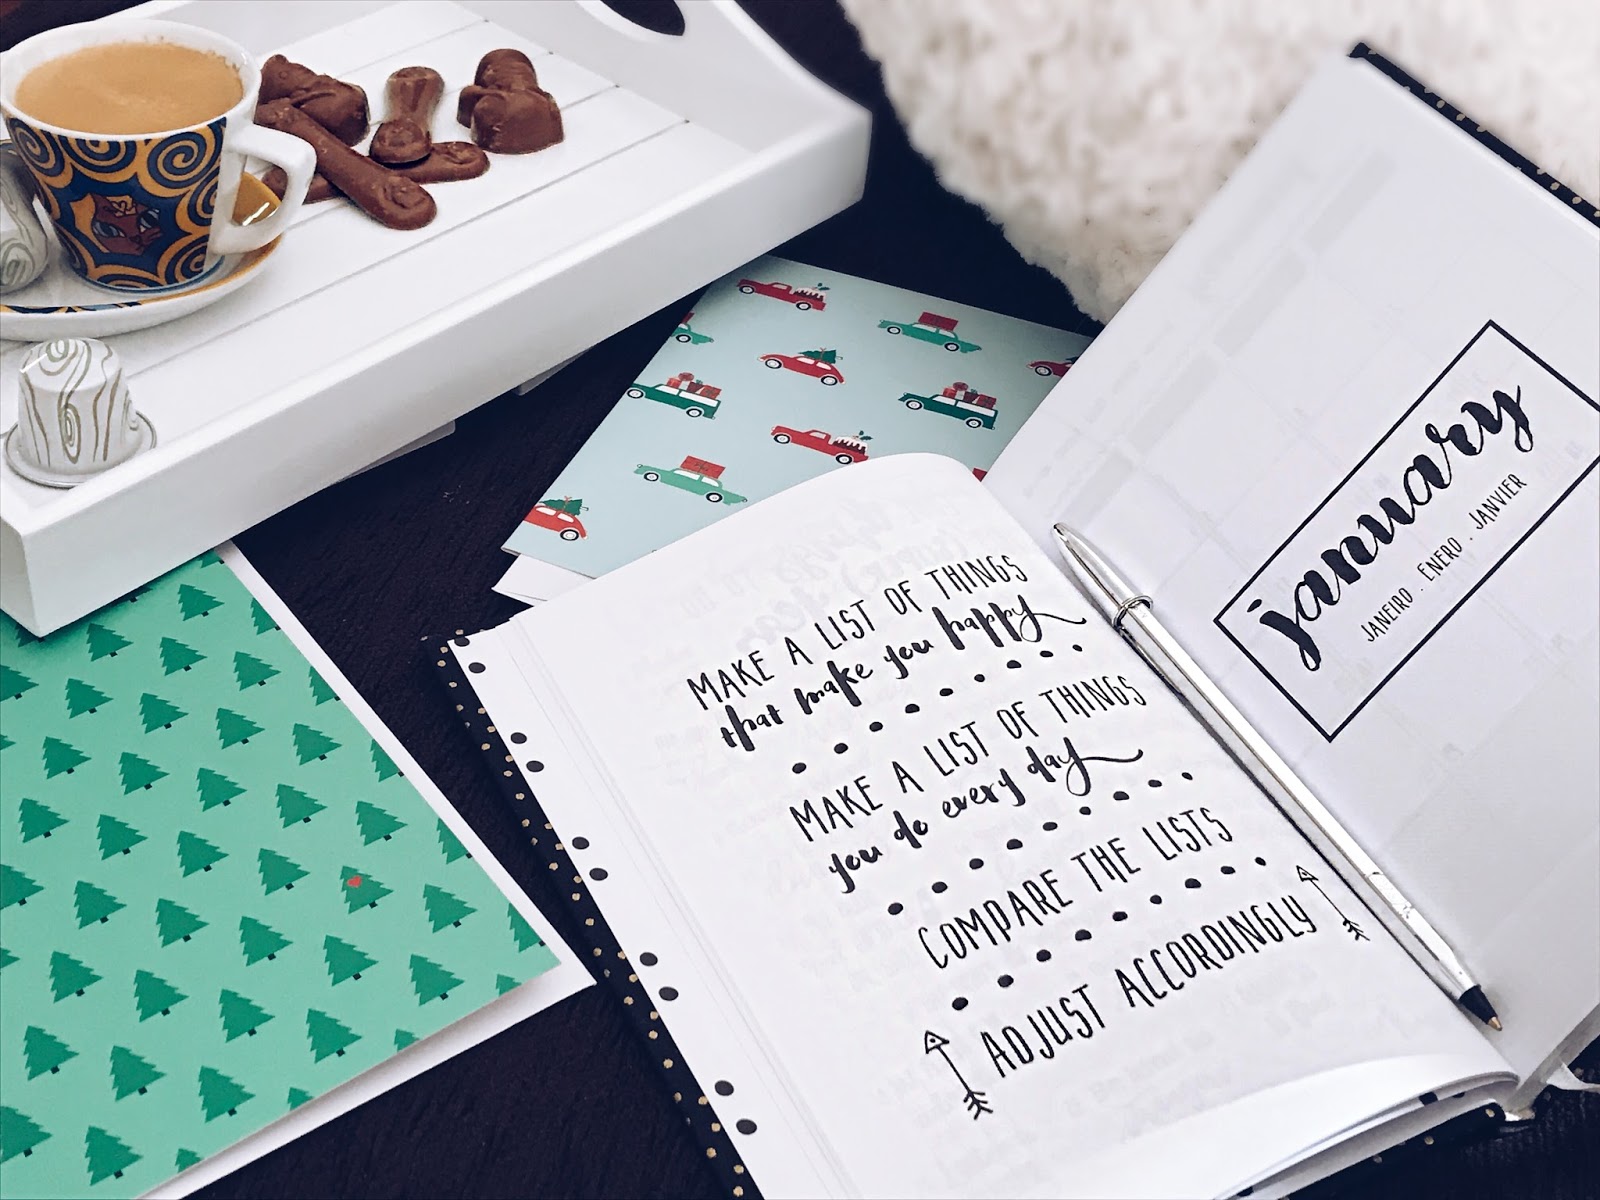 MAKE A LIST OF THINGS
that make you happy
MAKE A LIST OF THINGS
you do every day
COMPARE THE LISTS
ADJUST ACCORDINGLY
january
JANEIRO . ENERO . JANVIER